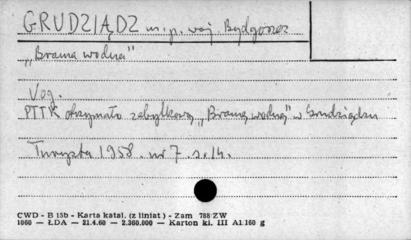 GRUDZIĄDZ m. p. woj. Bydgoszcz
„Brama wodna"
Vog.
PTTK otrzymało zabytkową „Bramę wodną" w Grudziądzu
Turysta 1958. nr 7. s. 14.
CWD - B 15b - Karta katal. (z liniat) - Zam 788 ZW
1060 — ŁDA — 21.4.60 — 2.360.000 — Karton kl. III A1 160 g